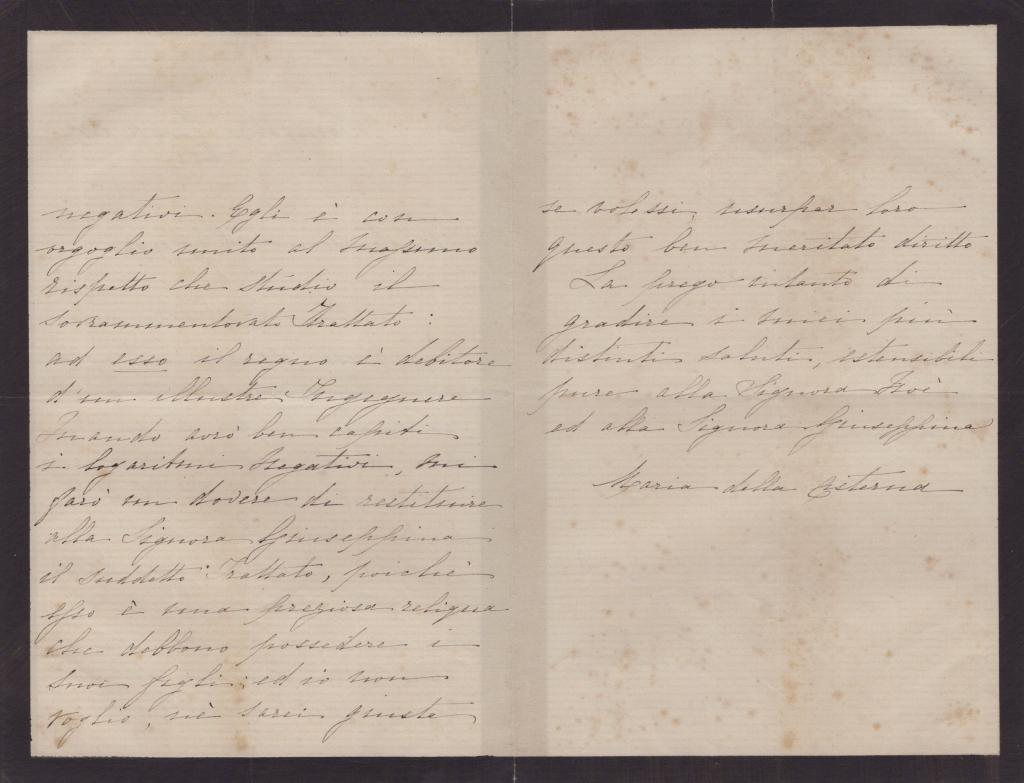 negativi. Egli è con
orgoglio unito al massimo
rispetto che studio il
sovrammentovato Trattato:
ad esso il regno è debitore
d'un illustre Ingegnere
Quando avrò ben capiti
i logaritmi negativi, mi
farò un dovere di restituire
alla Signora Giuseppina
il suddetto Trattato, poichè
esso è una preziosa reliqua
che debbono possedere i
suoi figli; ed io non
voglio, nè sarei giusta
se volessi, usurpar loro
questo ben meritato diritto
La prego intanto di
gradire i miei più
distinti saluti, estensibili
pure alla Signora
ed alla Signora Giuseppina
Maria della Cisterna